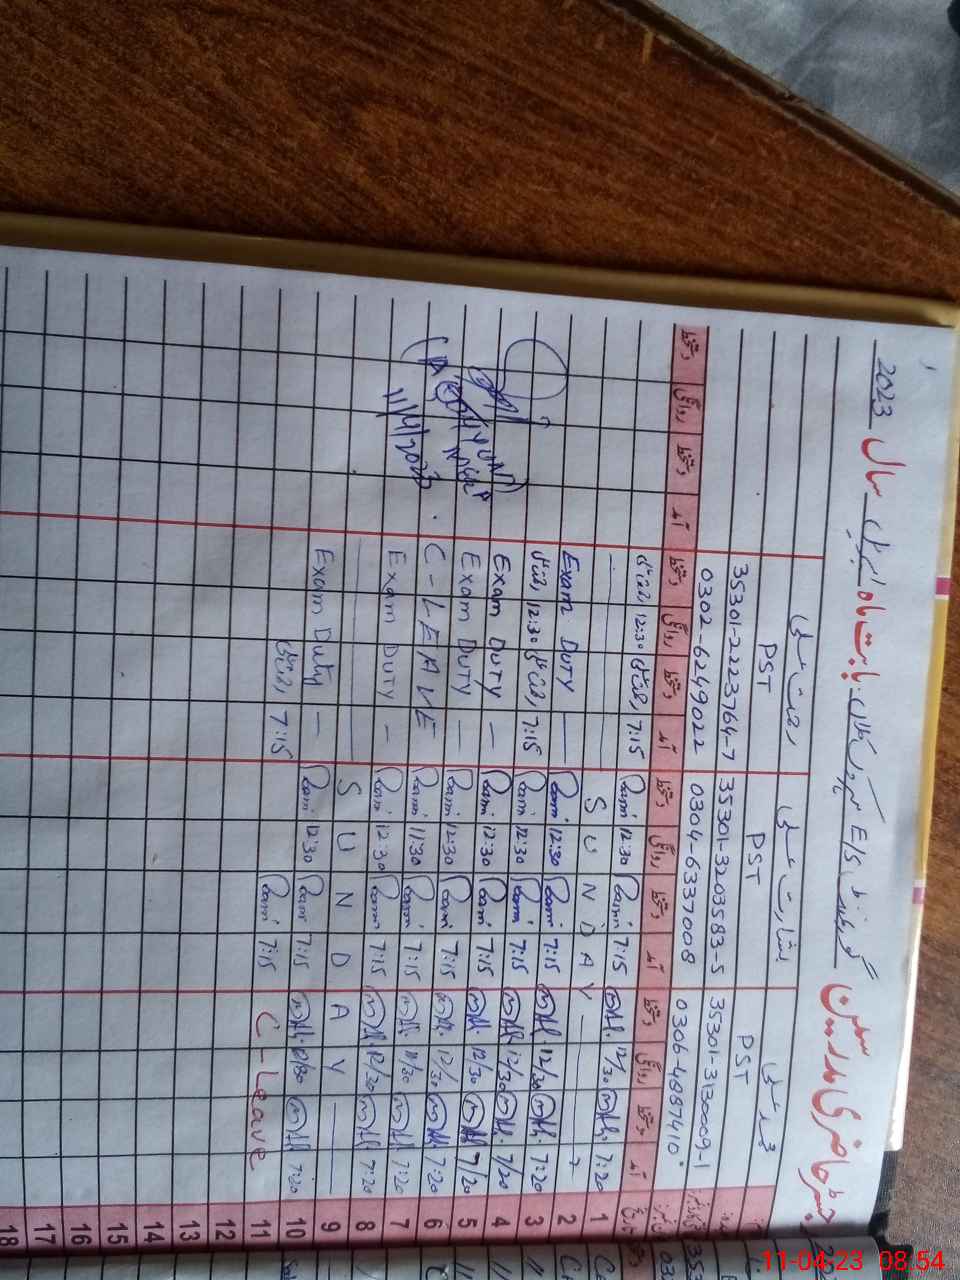 رجسٹر حاضری مدرسین سکول گورنمنٹ E/S کلاں بابت ماہ اپریل سال 2023
محمد علی بشارت علی رحمت علی
PST PST PST
35301-3130009-1 35301-3203583-5 35301-2223764-7
0306-4887410 0304-6337008 0302-6249022
آمد دستخط روانگی دستخط آمد دستخط روانگی دستخط آمد دستخط روانگی دستخط آمد دستخط روانگی دستخط
1 7:20 12/30 7:15 Rami 12:30 Rami 7:15 12:30
2 SUNDAY
3 7:20 12/30 7:15 Rami 12:30 Rami Exam DUTY
4 7/20 12/30 7:15 Rami 12:30 Rami 7:15 12:30
5 7/20 12/30 7:15 Rami 12:30 Rami Exam DUTY
6 7:20 12/30 7:15 Rami 12:30 Rami Exam DUTY
7 7:20 11/30 7:15 Rami 11:30 Rami C-LEAVE
8 7:20 12/30 7:15 Rami 12:30 Rami Exam DUTY
9 SUNDAY
10 7:20 12/30 7:15 Rami 12:30 Rami Exam Duty
11 C-Leave 7:15 Rami 7:15
12
13
14
15
16
17
18
11/4/2023
11-04-23 08:54